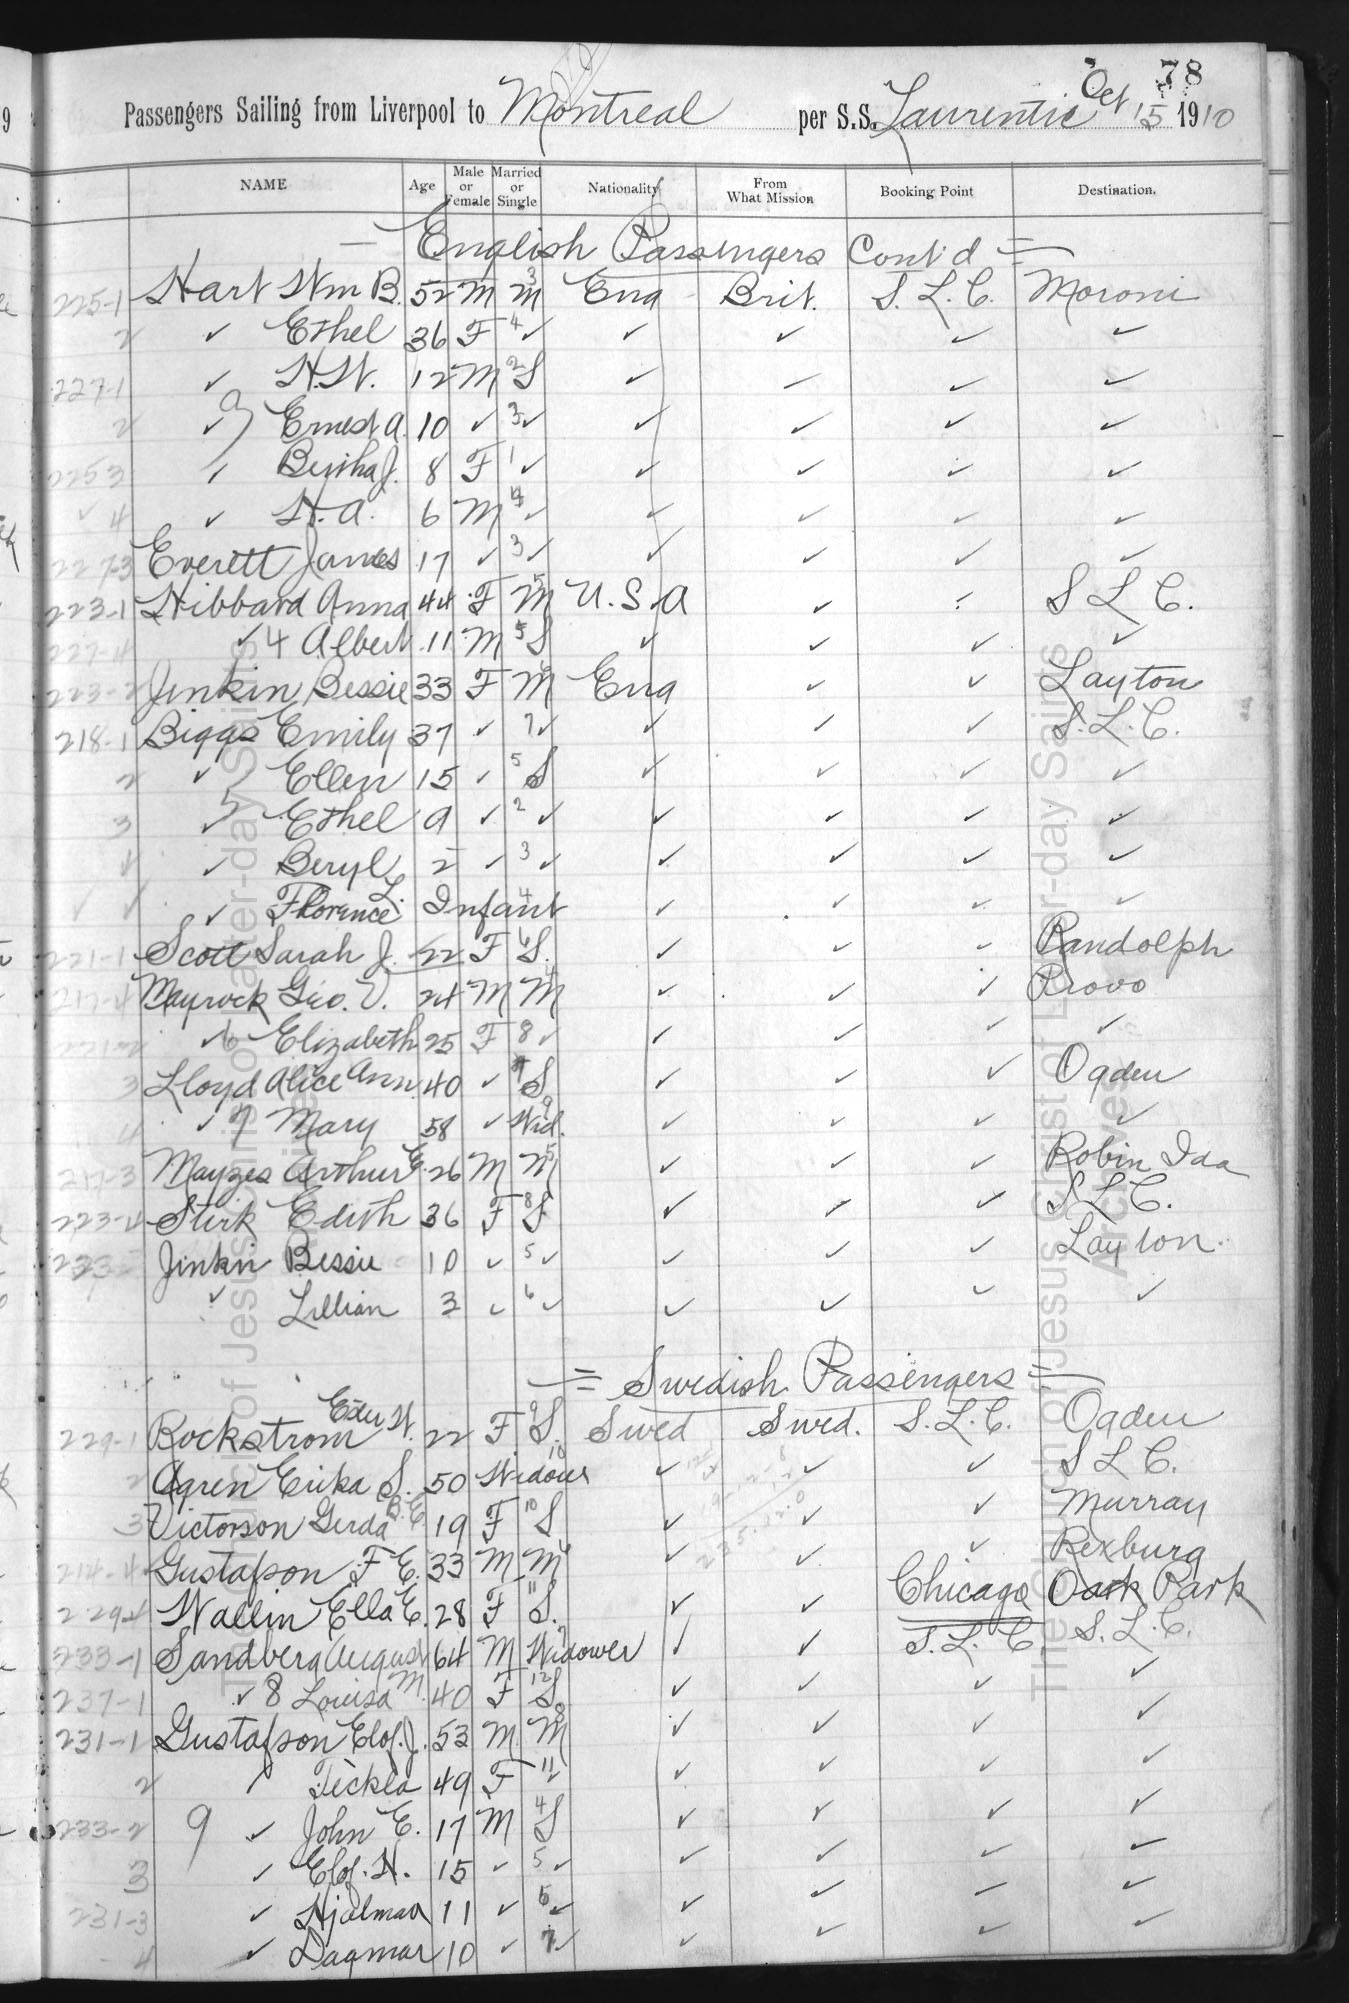 78
Passengers Sailing from Liverpool to Montreal per S.S. Laurentic Oct 15 1910
NAME Age Male or Female Married or Single Nationality From What Mission Booking Point Destination.
— English Passengers Cont'd =
225-1 Hart Wm B. 52 M 3 M Eng Brit. S. L. C. Moroni
2 ✓ Ethel 36 F 4 ✓ ✓ ✓ ✓ ✓
227-1 ✓ H.W. 12 M 2 S ✓ ✓ ✓ ✓
2 ✓ Ernest A. 10 ✓ 3 ✓ ✓ ✓ ✓ ✓
225 3 ✓ Bertha J. 8 F 1 ✓ ✓ ✓ ✓ ✓
✓ 4 ✓ H. A. 6 M 4 ✓ ✓ ✓ ✓ ✓
227-3 Everett James 17 ✓ 3 ✓ ✓ ✓ ✓ ✓
223-1 Hibbard Anna 44 F 5 M U.S.A ✓ : S L C.
227-4 ✓ 4 Albert 11 M 5 S ✓ ✓ ✓ ✓
223-2 Jinkin Bessie 33 F 6 M Eng ✓ ✓ Layton
218-1 Biggs Emily 37 ✓ 7 ✓ ✓ ✓ ✓ S. L. C.
2 ✓ Ellen 15 ✓ 5 S ✓ ✓ ✓ ✓
3 5 ✓ Ethel 9 ✓ 2 ✓ ✓ ✓ ✓ ✓
4 ✓ Beryl 2 ✓ 3 ✓ ✓ ✓ ✓ ✓
✓ ✓ ✓ Florence L. Infant 4 ✓ ✓ ✓ ✓
221-1 Scott Sarah J. 22 F 6 S. ✓ ✓ ✓ Randolph
217-4 Mayrock Geo. V. 24 M 4 M ✓ ✓ ✓ Provo
221-2 ✓ 6 Elizabeth 25 F 8 ✓ ✓ ✓ ✓ ✓
3 Lloyd Alice Ann 40 ✓ 7 S ✓ ✓ ✓ Ogden
4 ✓ 7 Mary 58 ✓ 9 Wid. ✓ ✓ ✓ ✓
217-3 Mayzes Arthur E. 26 M 5 M ✓ ✓ ✓ Robin Ida
223-4 Stirk Edith 36 F 8 S ✓ ✓ ✓ S L C.
223- Jinkin Bessie 10 ✓ 5 ✓ ✓ ✓ ✓ Layton.
✓ Lillian 3 ✓ 6 ✓ ✓ ✓ ✓ ✓
= Swedish Passengers =
229-1 Rockstrom Eden W. 22 F 9 S. Swed Swed. S. L. C. Ogden
2 Agren Erika S. 50 Widow 10 ✓ ✓ ✓ S L C.
3 Victorson Gerda B. E. 19 F 10 S. ✓ ✓ ✓ Murray
214-4 Gustafson F E. 33 M 6 M ✓ ✓ ✓ Rexburg
229-4 Wallin Ella E. 28 F 11 S. ✓ ✓ Chicago Oak Park
233-1 Sandberg August 64 M 7 Widower ✓ ✓ S. L. C S. L. C.
237-1 ✓ 8 Louisa M. 40 F 12 S. ✓ ✓ ✓ ✓
231-1 Gustafson Elof. J. 53 M 8 M ✓ ✓ ✓ ✓
2 ✓ Teckla 49 F 11 ✓ ✓ ✓ ✓ ✓
233-2 9 ✓ John E. 17 M 4 S ✓ ✓ ✓ ✓
3 ✓ Elof. H. 15 ✓ 5 ✓ ✓ ✓ ✓ ✓
231-3 ✓ Hjalmar 11 ✓ 6 ✓ ✓ ✓ ✓ ✓
4 ✓ Dagmar 10 ✓ 7 ✓ ✓ ✓ ✓ ✓
The Church of Jesus Christ of Latter-day Saints
Archives
The Church of Jesus Christ of Latter-day Saints
Archives